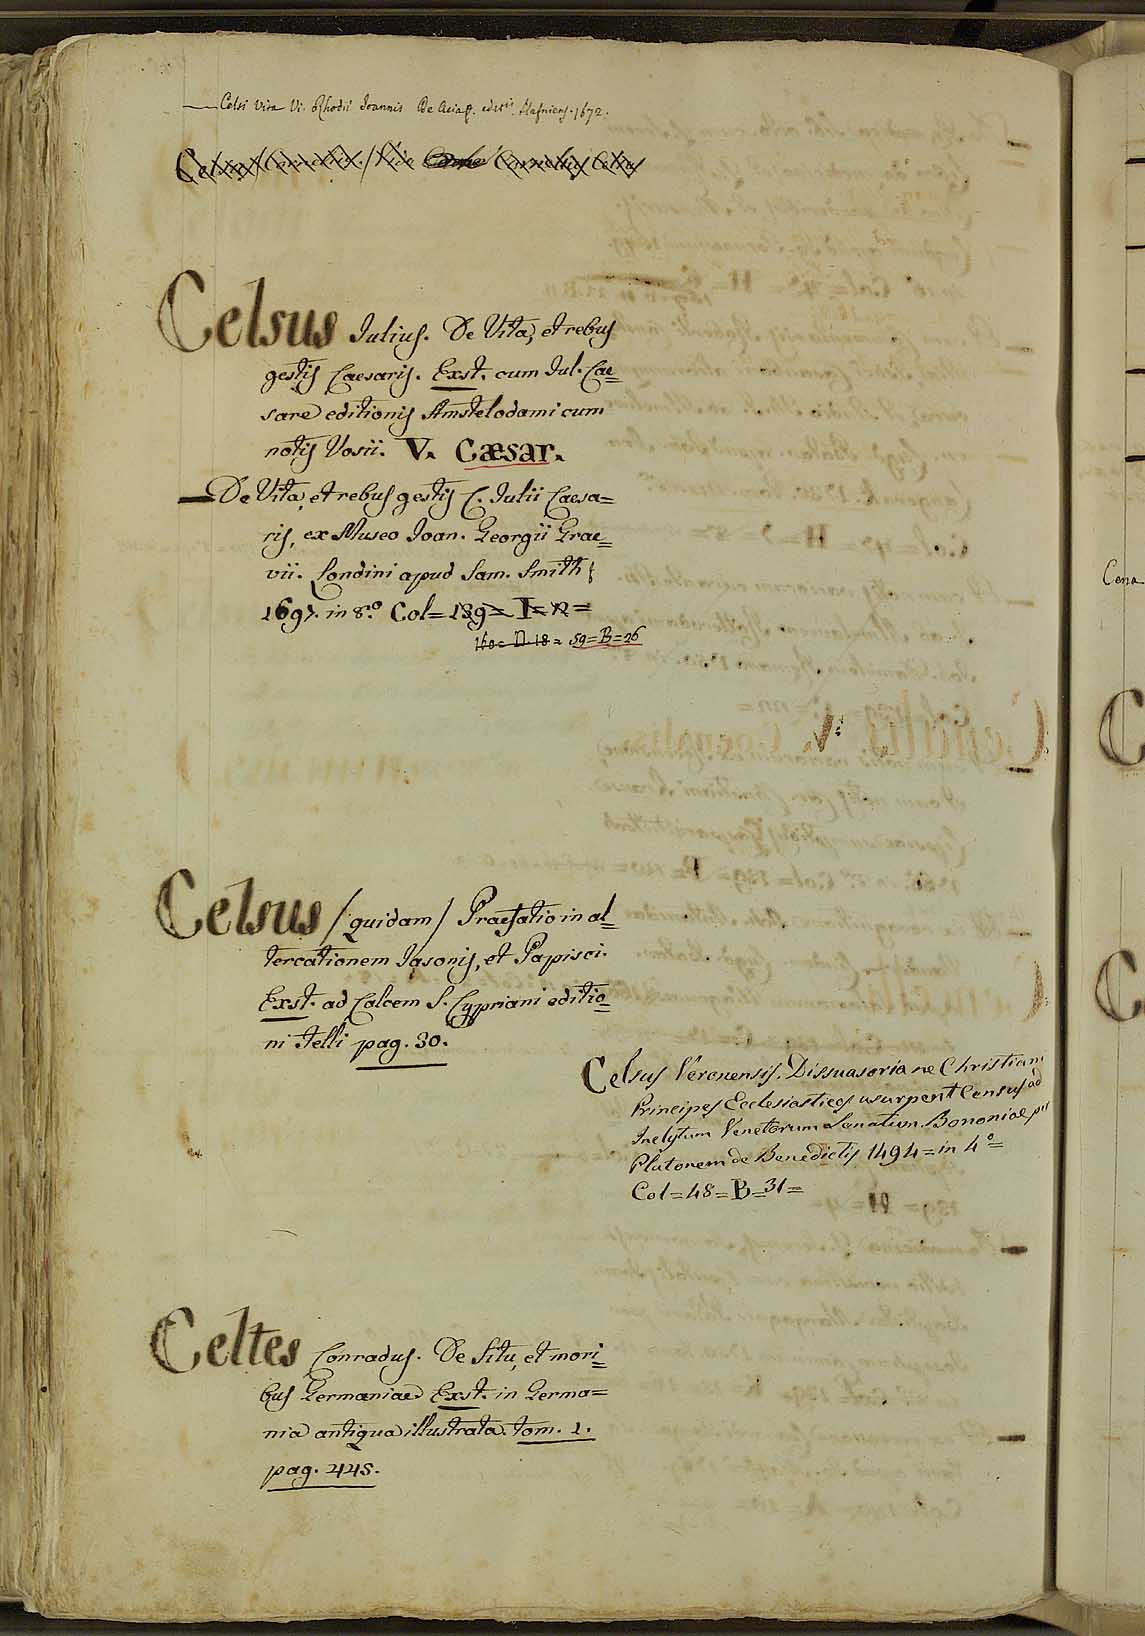 — Celsi Vita Vi. Rhodii Joannis De Acia editis Hafniens. 1672.
Celsus Cornelius Vide Cornelius Celsus
Celsus Julius. De Vita, et rebus
gestis Caesaris. Exst. cum Jul. Cae=
sare editionis Amstelodami cum
notis Vosii. V. Cæsar.
— De Vita, et rebus gestis C. Julii Caesa=
ris, ex Museo Joan. Georgii Grae=
vii. Londini apud Sam. Smith
1697. in 8.º Col= 139= I= 12=
160= D. 18= 59= B= 26
Celsus (quidam) Praefatio in al=
tercationem Jasonis, et Papisci.
Exst. ad calcem S. Cypriani editio=
ni Felli pag. 30.
Celsus Veronensis. Dissuasoria ne Christiani
Principes Ecclesiasticos usurpent Census ad
Inclytum Venetorum Senatum. Bononiae per
Platonem de Benedictis 1494= in 4º=
Col= 48= B= 31=
Celtes Conradus. De Situ, et mori=
bus Germaniae Exst. in Germa=
nia antiqua illustrata. tom. 1.
pag. 445.